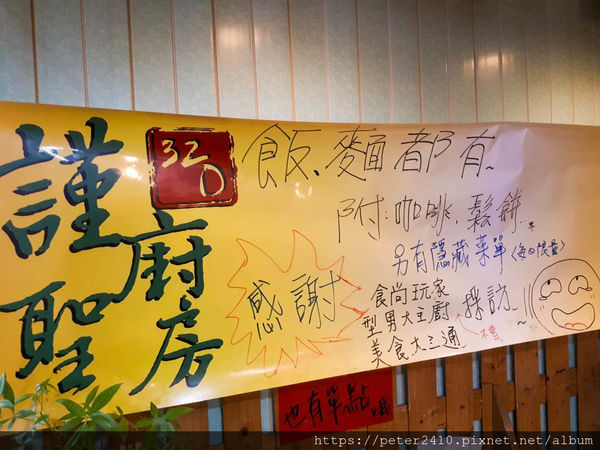 謹聖
廚房
320
飯、麵都有~
附:咖啡.鬆餅...
另有隱藏菜單(每日限量)
感謝
食尚玩家
型男大主廚
美食大三通
採訪
也有單點
https://peter2410.pixnet.net/album